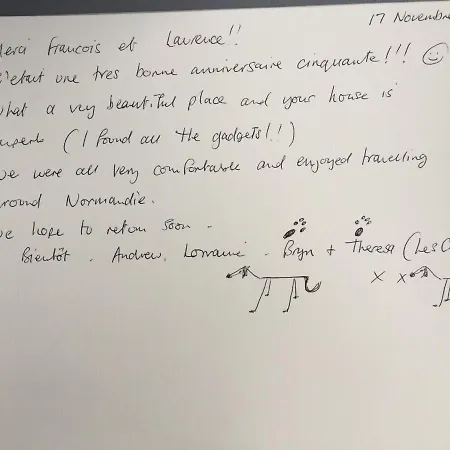 17 Novembre
Merci Francois et Laurence!!
C'etait une tres bonne anniversaire cinquante!!!
What a very beautiful place and your house is
superb (I found all the gadgets!!)
We were all very comfortable and enjoyed travelling
around Normandie.
We hope to return soon -
Bientôt. Andrew, Lorraine - Bryn + Theresa (Les
x x